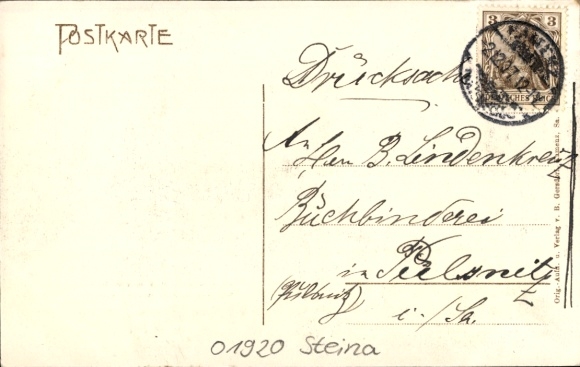 POSTKARTE
3 3
DEUTSCHES REICH
KAMENZ
Drucksache
An
Herr B. Lindenkreuz
Buchbinderei
in Pulsnitz
(Pulsnitz)
i./Sa.
Orig.-Aufn. u. Verlag v. B. Gersdorf, Kamenz, Sa.
01920 Steina